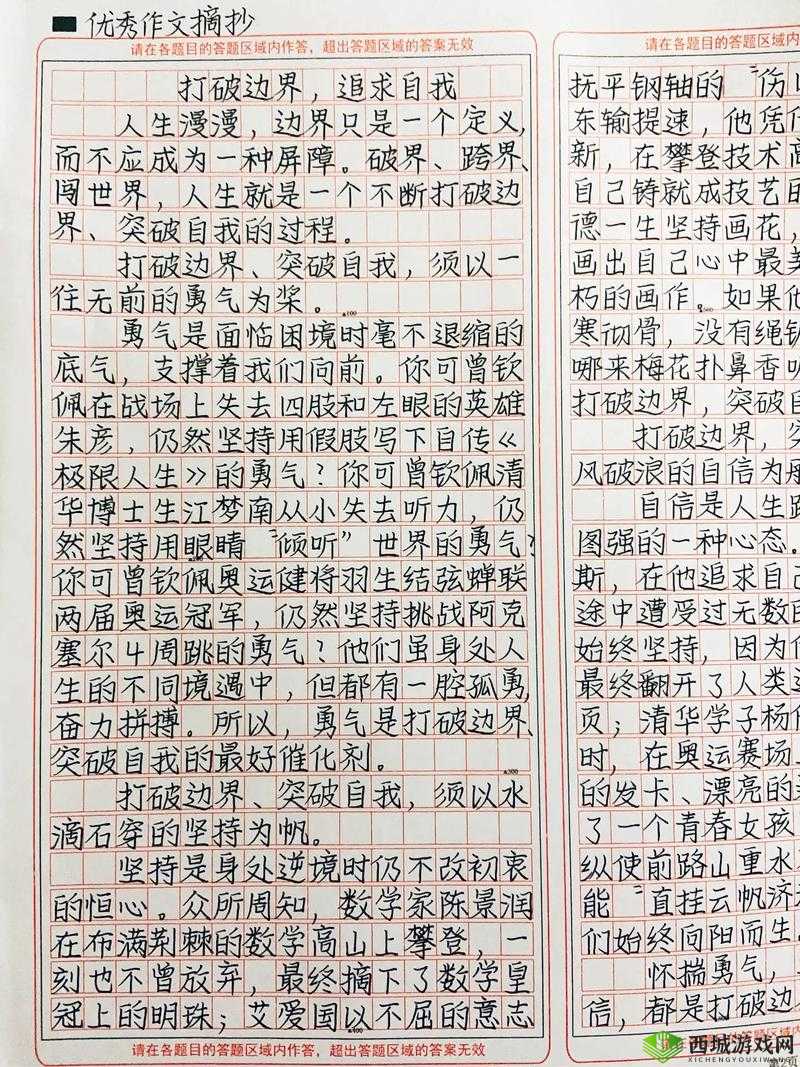 优秀作文摘抄
请在各题目的答题区域内作答，超出答题区域的答案无效
打破边界，追求自我
人生漫漫，边界只是一个定义，
而不应成为一种屏障。破界、跨界、
闯世界，人生就是一个不断打破边
界、突破自我的过程。
打破边界、突破自我，须以一
往无前的勇气为桨。
▲100
勇气是面临困境时毫不退缩的
底气，支撑着我们向前。你可曾钦
佩在战场上失去四肢和左眼的英雄
朱彦，仍然坚持用假肢写下自传《
极限人生》的勇气？你可曾钦佩清
华博士生江梦南从小失去听力，仍
然坚持用眼睛“倾听”世界的勇气？
你可曾钦佩奥运健将羽生结弦蝉联
两届奥运冠军，仍然坚持挑战阿克
塞尔4周跳的勇气？他们虽身处人
生的不同境遇中，但都有一腔孤勇，
奋力拼搏。所以，勇气是打破边界、
突破自我的最好催化剂。
▲300
打破边界、突破自我，须以水
滴石穿的坚持为帆。
坚持是身处逆境时仍不改初衷
的恒心。众所周知，数学家陈景润
在布满荆棘的数学高山上攀登，一
刻也不曾放弃，最终摘下了数学皇
冠上的明珠；艾爱国以不屈的意志
▲400
请在各题目的答题区域内作答，超出答题区域的答案无效
请在各题目的答题区域内
抚平钢轴的“伤
东输提速，他凭
新，在攀登技术高
自己铸就成技艺的
德一生坚持画花，
画出自己心中最美
朽的画作。如果他
寒彻骨，没有绳锯
哪来梅花扑鼻香
打破边界，突破自
打破边界，突
风破浪的自信为
自信是人生路
图强的一种心态。
斯，在他追求自己
途中遭受过无数的
始终坚持，因为
最终翻开了人类
页；清华学子杨
时，在奥运赛场上
的发卡、漂亮的
了一个青春女孩
纵使前路山重水
能“直挂云帆济
们始终向阳而生
怀揣勇气，
信，都是打破边
请在各题目的
西城游戏网
XICHENGYOUXIWANG.COM
第2页